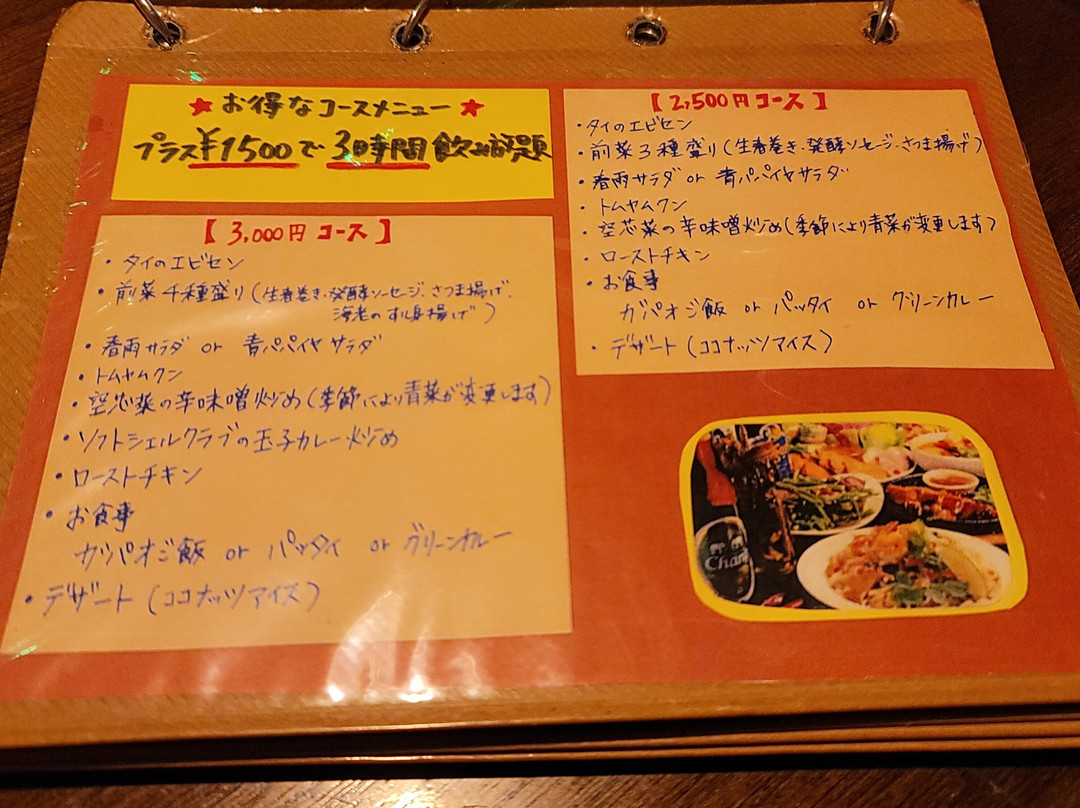 ★お得なコースメニュー★
プラス¥1500で3時間飲み放題
【3,000円 コース】
・タイのエビセン
・前菜4種盛り(生春巻き・発酵ソーセージ・さつま揚げ・
海老のすり身揚げ)
・春雨サラダ or 青パパイヤサラダ
・トムヤムクン
・空芯菜の辛味噌炒め(季節により青菜が変更します)
・ソフトシェルクラブの玉子カレー炒め
・ローストチキン
・お食事
ガパオジ飯 or パッタイ or グリーンカレー
・デザート(ココナッツアイス)
【2,500円コース】
・タイのエビセン
・前菜3種盛り(生春巻き・発酵ソーセージ・さつま揚げ)
・春雨サラダ or 青パパイヤサラダ
・トムヤムクン
・空芯菜の辛味噌炒め(季節により青菜が変更します)
・ローストチキン
・お食事
ガパオジ飯 or パッタイ or グリーンカレー
・デザート(ココナッツアイス)
Chang